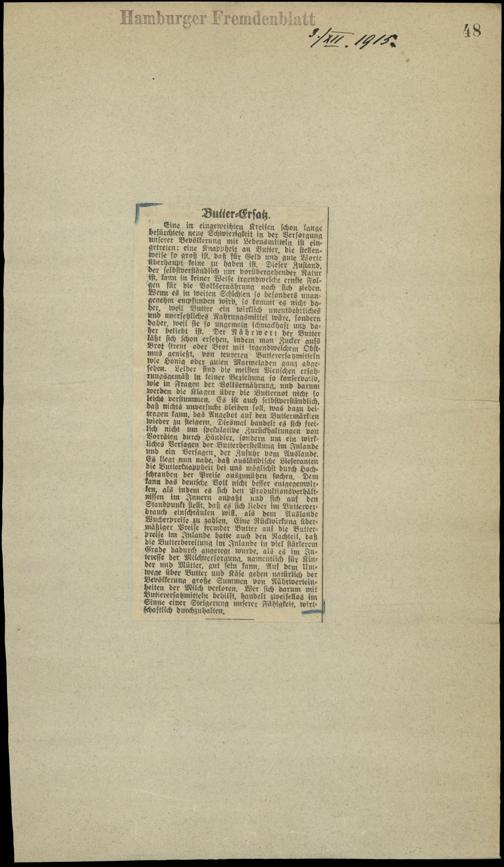 Hamburger Fremdenblatt
48
3./XII. 1915.
Butter-Ersatz.
Eine in eingeweihten Kreisen schon lange
befürchtete neue Schwierigkeit in der Versorgung
unserer Bevölkerung mit Lebensmitteln ist ein-
getreten: eine Knappheit an Butter, die stellen-
weise so groß ist, daß für Geld und gute Worte
überhaupt keine zu haben ist. Dieser Zustand,
der selbstverständlich nur vorübergehender Natur
ist, kann in keiner Weise irgendwelche ernste Fol-
gen für die Volksernährung nach sich ziehen.
Wenn es in weiten Schichten so besonders unan-
genehm empfunden wird, so kommt es nicht da-
her, weil Butter ein wirklich unentbehrliches
und unersetzliches Nahrungsmittel wäre, sondern
daher, weil sie so ungemein schmackhaft und da-
her beliebt ist. Der Nährwert der Butter
läßt sich schon ersetzen, indem man Zucker aufs
Brot streut oder Brot mit irgendwelchem Obst-
mus genießt, von teureren Butterersatzmitteln
wie Honig oder guten Marmeladen ganz abge-
sehen. Leider sind die meisten Menschen erfah-
rungsgemäß in keiner Beziehung so konservativ,
wie in Fragen der Volksernährung, und darum
werden die Klagen über die Butternot nicht so
leicht verstummen. Es ist auch selbstverständlich,
daß nichts unversucht bleiben soll, was dazu bei-
tragen kann, das Angebot auf den Buttermärkten
wieder zu steigern. Diesmal handelt es sich frei-
lich nicht um spekulative Zurückhaltungen von
Vorräten durch Händler, sondern um ein wirk-
liches Versagen der Butterherstellung im Inlande
und ein Versagen der Zufuhr vom Auslande.
Es liegt nun nahe, daß ausländische Lieferanten
die Butterknappheit bei uns möglichst durch Hoch-
schrauben der Preise auszunützen suchen. Dem
kann das deutsche Volk nicht besser entgegenwir-
ken, als indem es sich den Produktionsverhält-
nissen im Innern anpaßt und sich auf den
Standpunkt stellt, daß es sich lieber im Butterver-
brauch einschränken will, als dem Auslande
Wucherpreise zu zahlen. Eine Rückwirkung über-
mäßiger Preise fremder Butter auf die Butter-
preise im Inlande hätte auch den Nachteil, daß
die Butterbereitung im Inlande in viel stärkerem
Grade dadurch angeregt würde, als es im In-
teresse der Milchversorgung, namentlich für Kin-
der und Mütter, gut sein kann. Auf dem Um-
wege über Butter und Käse gehen natürlich der
Bevölkerung große Summen von Nährwertein-
heiten der Milch verloren. Wer sich darum mit
Butterersatzmitteln behilft, handelt zweifellos im
Sinne einer Steigerung unserer Fähigkeit, wirt-
schaftlich durchzuhalten.